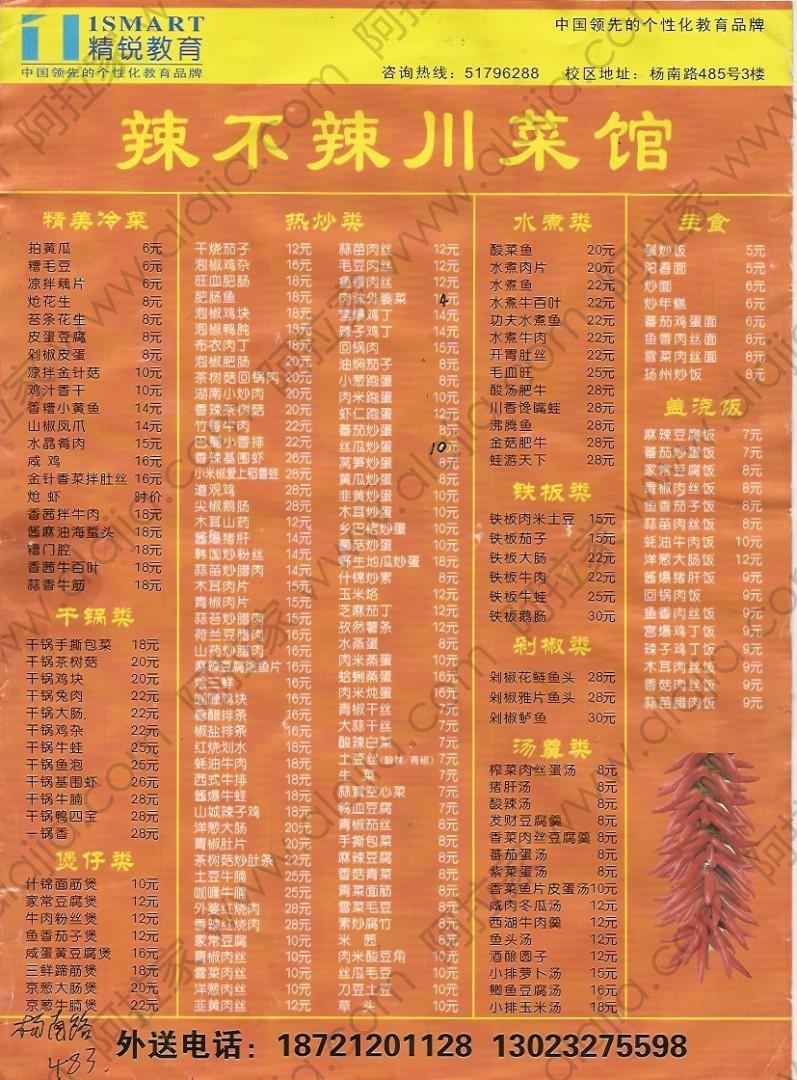 1SMART
精锐教育
中国领先的个性化教育品牌
中国领先的个性化教育品牌
咨询热线：51796288 校区地址：杨南路485号3楼
辣不辣川菜馆
精美冷菜
拍黄瓜 6元
糟毛豆 6元
凉拌藕片 6元
炝花生 8元
苔条花生 8元
皮蛋豆腐 8元
剁椒皮蛋 8元
凉拌金针菇 10元
鸡汁香干 10元
香糟小黄鱼 14元
山椒凤爪 14元
水晶肴肉 15元
咸鸡 16元
金针香菜拌肚丝 16元
炝虾 时价
香茜拌牛肉 18元
酱麻油海蜇头 18元
糟门腔 18元
香茜牛百叶 18元
蒜香牛筋 18元
干锅类
干锅手撕包菜 18元
干锅茶树菇 20元
干锅鸡块 20元
干锅兔肉 22元
干锅大肠 22元
干锅鸡杂 22元
干锅牛蛙 25元
干锅鱼泡 25元
干锅基围虾 26元
干锅牛腩 28元
干锅鸭四宝 28元
一锅香 28元
煲仔类
什锦面筋煲 10元
家常豆腐煲 12元
牛肉粉丝煲 12元
鱼香茄子煲 12元
咸蛋黄豆腐煲 16元
三鲜蹄筋煲 18元
京葱大肠煲 20元
京葱牛腩煲 22元
热炒类
干烧茄子 12元
泡椒鸡杂 16元
旺血肥肠 18元
肥肠鱼 18元
泡椒鸡块 18元
泡椒鸭肫 18元
布衣肉丁 18元
泡椒肥肠 20元
茶树菇回锅肉 20元
湖南小炒肉 20元
香辣茶树菇 20元
竹香牛肉 22元
巴蜀小香排 22元
香辣基围虾 26元
小米椒爱上稻香蛙 28元
道观鸡 28元
尖椒鹅肠 28元
木耳山药 12元
酱爆猪肝 14元
韩国炒粉丝 14元
蒜苗炒腊肉 14元
木耳肉片 15元
青椒肉片 15元
蒜苔炒腊肉 15元
荷兰豆腊肉 16元
山药炒腊肉 16元
麻辣豆腐烩鱼片 16元
烩三鲜 16元
咖喱鸡块 16元
糖醋排条 16元
椒盐排条 16元
红烧划水 18元
蚝油牛肉 18元
西式牛排 18元
酱爆牛蛙 18元
山城辣子鸡 18元
洋葱大肠 20元
青椒肚片 20元
茶树菇炒肚条 22元
土豆牛腩 25元
咖喱牛腩 25元
外婆红烧肉 28元
香辣红烧肉 28元
家常豆腐 10元
青椒肉丝 10元
雪菜肉丝 10元
茭白肉丝 10元
韭黄肉丝 12元
蒜苗肉丝 12元
毛豆肉丝 12元
鱼香肉丝 12元
肉沫外婆菜 4
宫爆鸡丁 14元
辣子鸡丁 14元
回锅肉 15元
油焖茄子 8元
小葱跑蛋 8元
肉米跑蛋 10元
虾仁跑蛋 12元
蕃茄炒蛋 8元
丝瓜炒蛋 10
莴笋炒蛋 8元
黄瓜炒蛋 8元
韭黄炒蛋 10元
木耳炒蛋 10元
乡巴佬炒蛋 10元
菌菇炒蛋 10元
野生地瓜炒蛋 18元
什锦炒素 8元
玉米烙 12元
芝麻茄丁 12元
孜然薯条 12元
水蒸蛋 8元
肉米蒸蛋 10元
蛤蜊蒸蛋 16元
肉米炖蛋 16元
青椒干丝 7元
大蒜干丝 7元
酸辣白菜 7元
土豆丝(酸辣/青椒) 7元
生菜 7元
蒜茸空心菜 7元
鸭血豆腐 7元
青椒茄丝 8元
手撕包菜 8元
麻辣豆腐 8元
香菇青菜 8元
青菜面筋 8元
雪菜毛豆 8元
素炒腐竹 8元
米苋 8元
肉米酸豆角 10元
丝瓜毛豆 10元
刀豆土豆 10元
草头 10元
水煮类
酸菜鱼 20元
水煮肉片 20元
水煮鱼 22元
水煮牛百叶 22元
功夫水煮鱼 22元
水煮牛肉 22元
开胃肚丝 22元
毛血旺 25元
酸汤肥牛 28元
川香馋嘴蛙 28元
沸腾鱼 28元
金菇肥牛 28元
蛙游天下 28元
铁板类
铁板肉米土豆 15元
铁板茄子 15元
铁板大肠 22元
铁板牛肉 22元
铁板牛蛙 25元
铁板鹅肠 30元
剁椒类
剁椒花鲢鱼头 28元
剁椒雅片鱼头 28元
剁椒鲈鱼 30元
汤羹类
榨菜肉丝蛋汤 8元
猪肝汤 8元
酸辣汤 8元
发财豆腐羹 8元
香菜肉丝豆腐羹 8元
蕃茄蛋汤 8元
紫菜蛋汤 8元
香菜鱼片皮蛋汤 10元
咸肉冬瓜汤 12元
西湖牛肉羹 12元
鱼头汤 12元
酒酿圆子 12元
小排萝卜汤 15元
鲫鱼豆腐汤 16元
小排玉米汤 18元
单食
蛋炒饭 5元
阳春面 5元
炒面 6元
炒年糕 6元
蕃茄鸡蛋面 6元
鱼香肉丝面 8元
雪菜肉丝面 8元
扬州炒饭 8元
盖浇饭
麻辣豆腐饭 7元
蕃茄炒蛋饭 7元
家常豆腐饭 8元
青椒肉丝饭 8元
鱼香茄子饭 8元
蒜苗肉丝饭 8元
蚝油牛肉饭 10元
洋葱大肠饭 12元
酱爆猪肝饭 9元
回锅肉饭 9元
鱼香肉丝饭 9元
宫爆鸡丁饭 9元
辣子鸡丁饭 9元
木耳肉丝饭 9元
香菇肉丝饭 9元
蒜苗腊肉饭 9元
杨南路
483.
外送电话：18721201128 13023275598
阿拉家 www.alajia.com